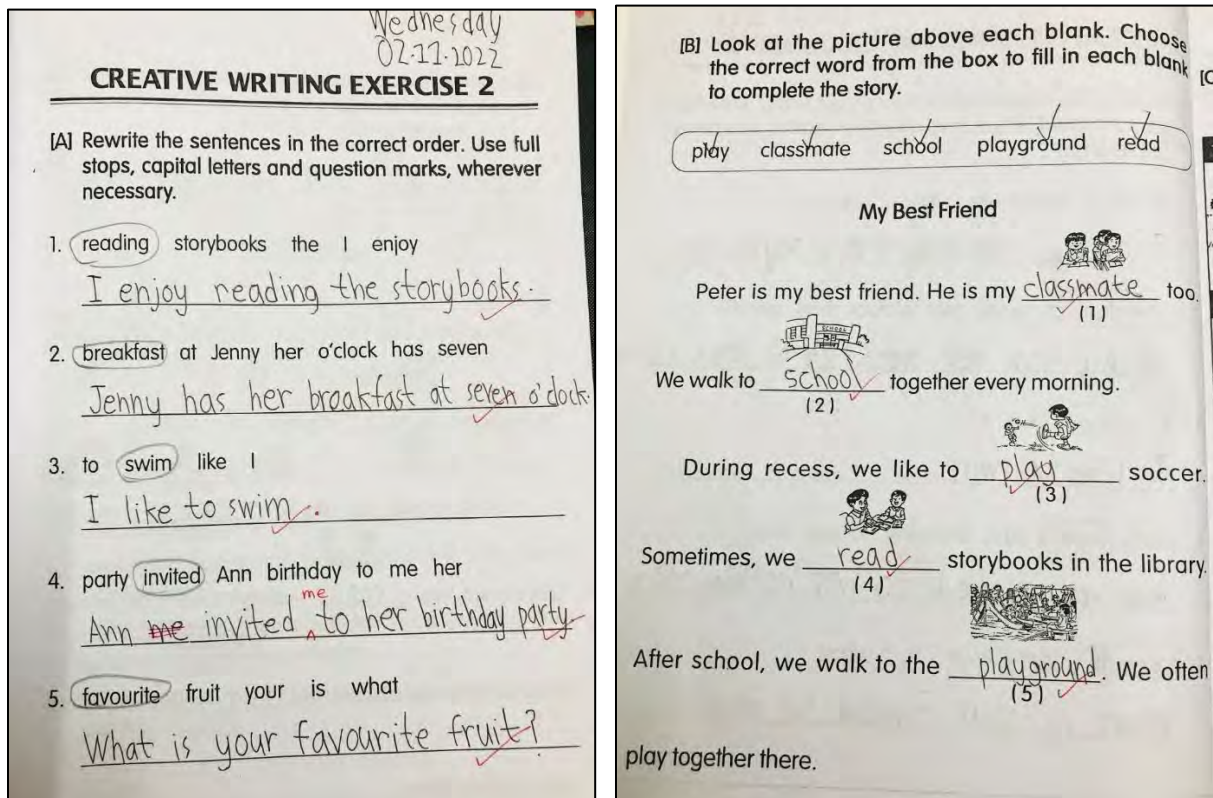 Wednesday
02.11.2022
CREATIVE WRITING EXERCISE 2
[A] Rewrite the sentences in the correct order. Use full
stops, capital letters and question marks, wherever
necessary.
1. reading storybooks the I enjoy
I enjoy reading the storybooks.
2. breakfast at Jenny her o'clock has seven
Jenny has her breakfast at seven o'clock.
3. to swim like I
I like to swim.
4. party invited Ann birthday to me her
me
Ann me invited to her birthday party.
5. favourite fruit your is what
What is your favourite fruit?
[B] Look at the picture above each blank. Choose
the correct word from the box to fill in each blank
to complete the story.
play classmate school playground read
My Best Friend
Peter is my best friend. He is my classmate too.
(1)
SCHOOL
We walk to school together every morning.
(2)
During recess, we like to play soccer.
(3)
Sometimes, we read storybooks in the library.
(4)
After school, we walk to the playground. We often
(5)
play together there.
[C